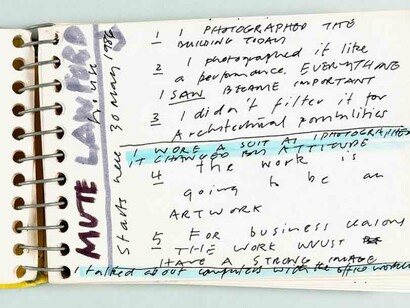 MUTE LANFORD
house
Starts here 30 May 1986
1 I PHOTOGRAPHED THE
BUILDING TODAY
2 I photographed it like
a performance. EVERYTHING
I SAW BECAME IMPORTANT
3 I didn't filter it for
Architectural possibilities
I WORE A SUIT AS I PHOTOGRAPHED
IT CHANGED MY ATTITUDE
4 the work is
going to be an
ARTWORK
5 FOR business
THE WORK MUST
HAVE A STRONG IMAGE
I talked about computers with the office workers